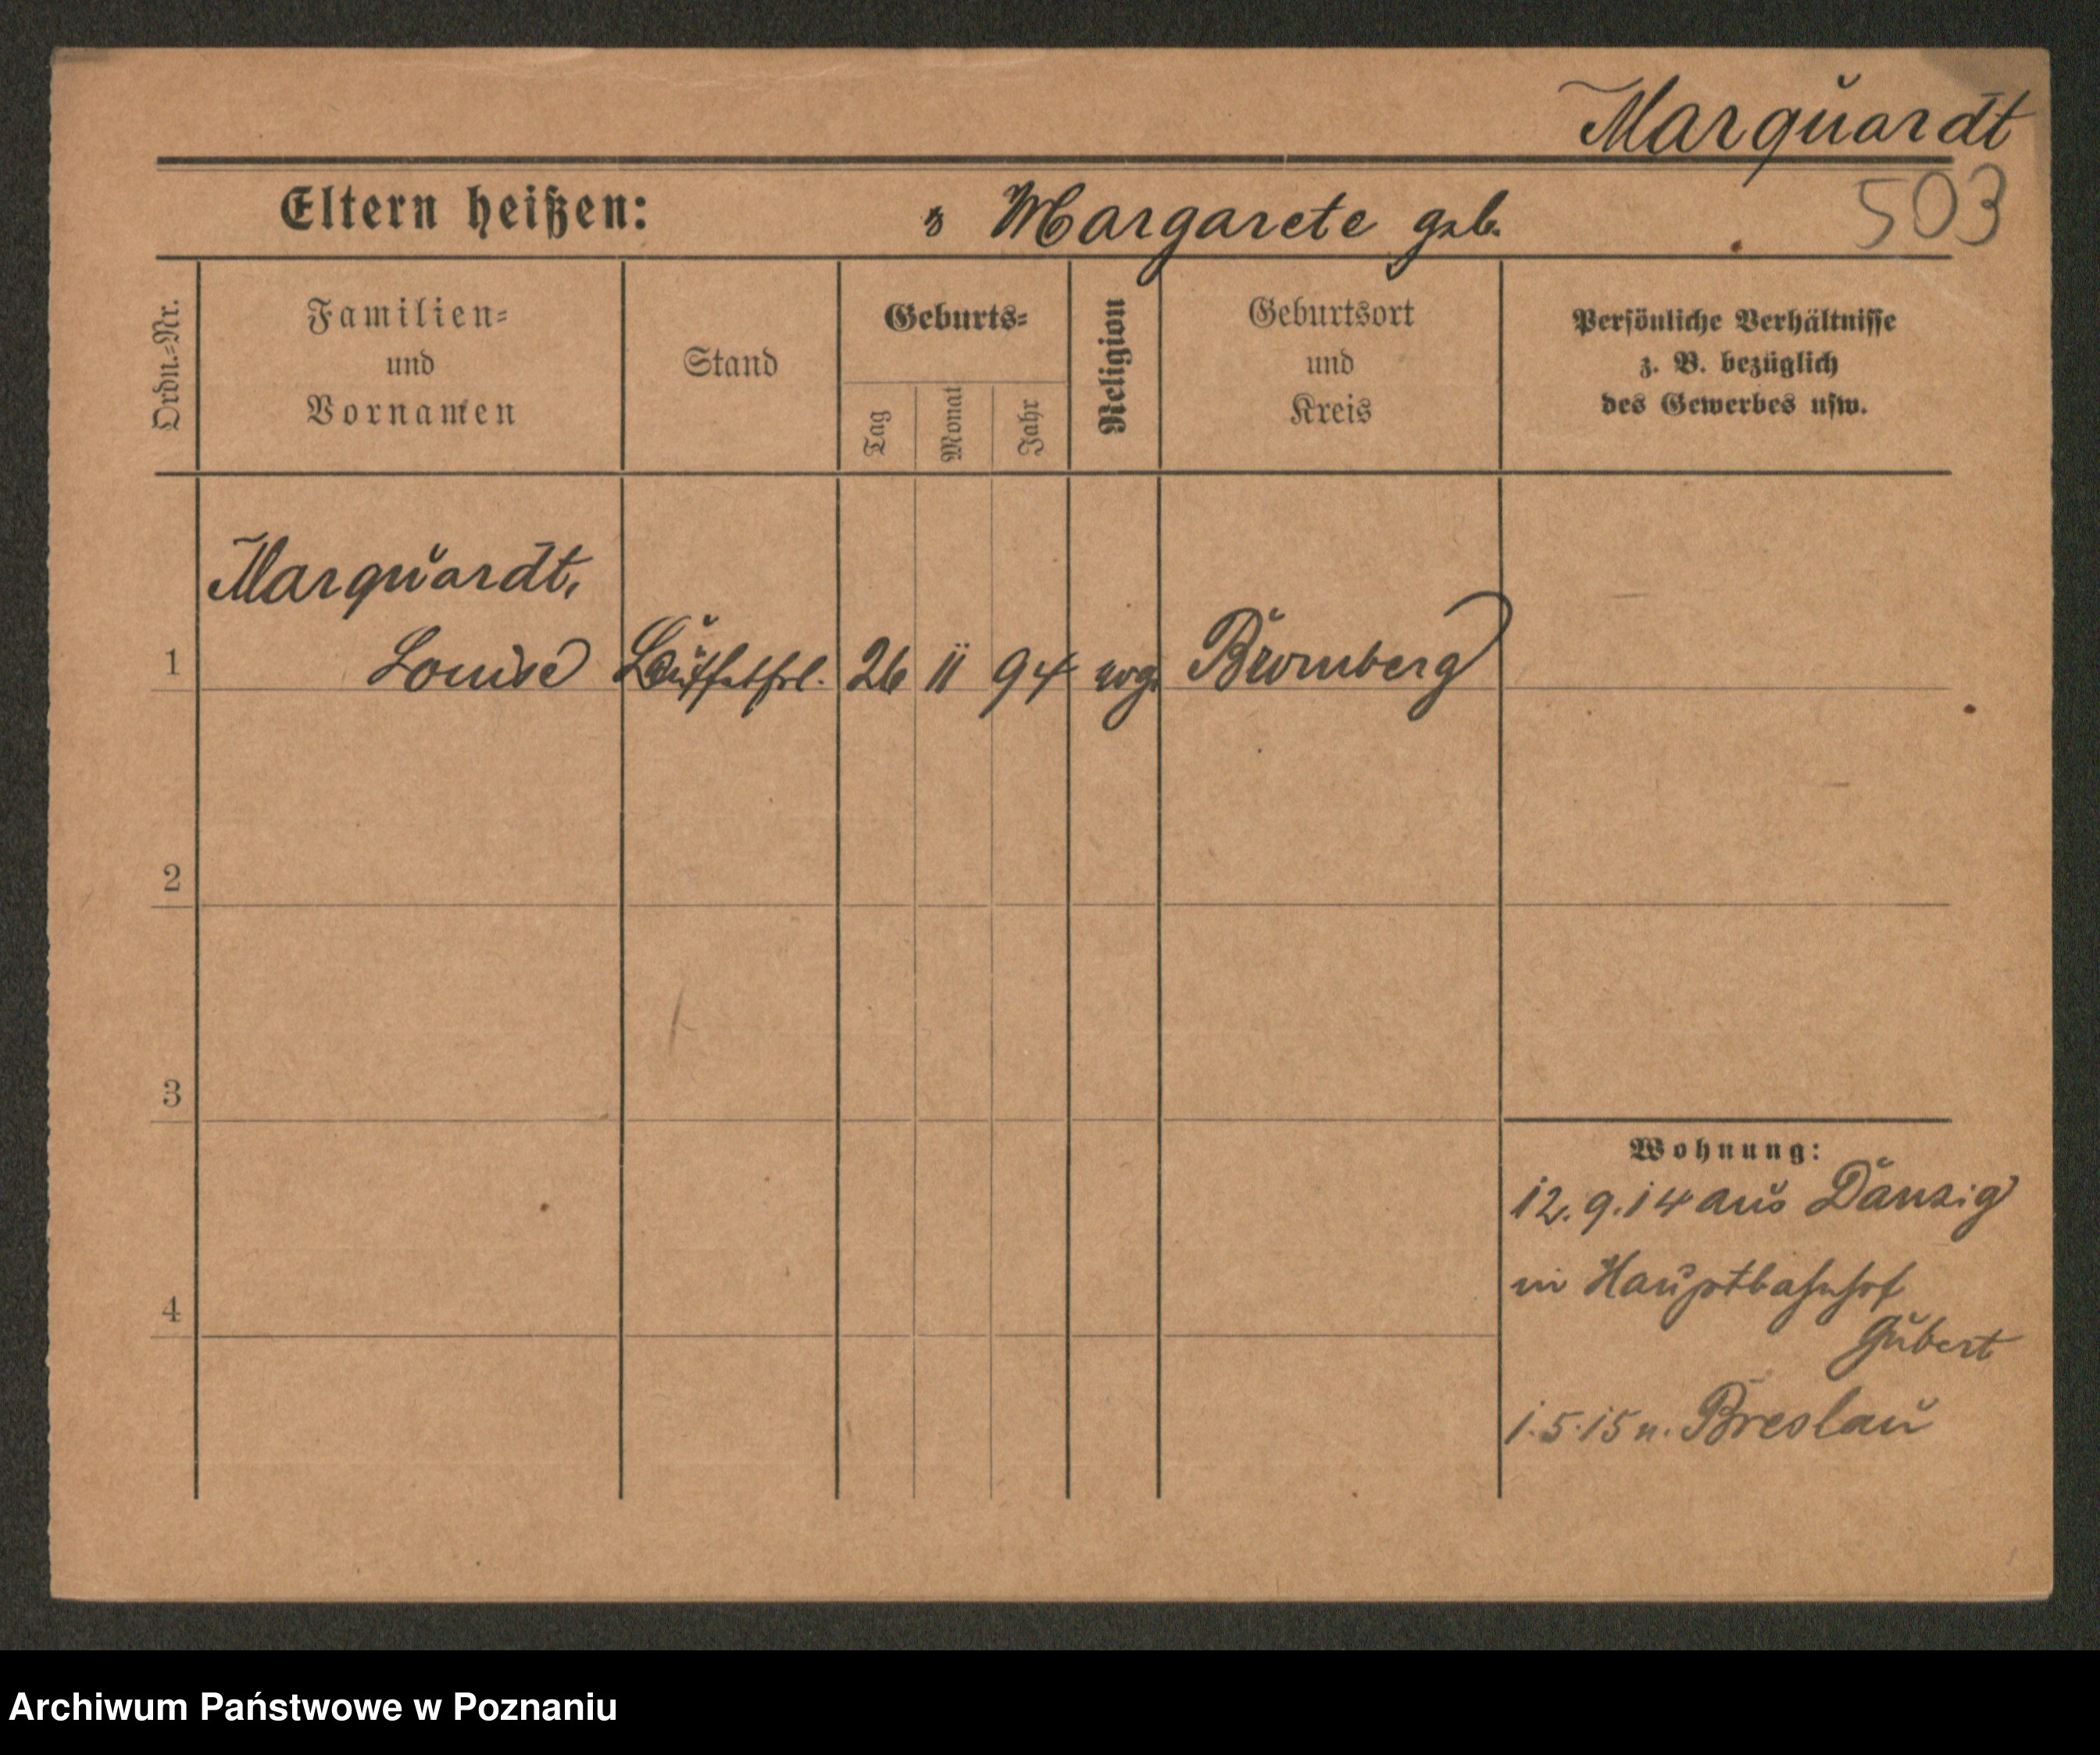 Marquardt
503
Eltern heißen: Margarete geb.
Ordn.=Nr.
Familien=
und
Vornamen
Stand
Geburts=
Tag
Monat
Jahr
Religion
Geburtsort
und
Kreis
Persönliche Verhältnisse
z. B. bezüglich
des Gewerbes usw.
Marquardt,
1 Louise Büffetfrl. 26 11 94 evg. Bromberg
2
3
4
Wohnung:
12. 9. 14 aus Danzig
in Hauptbahnhof
1. 5. 15 n. Breslau
Archiwum Państwowe w Poznaniu